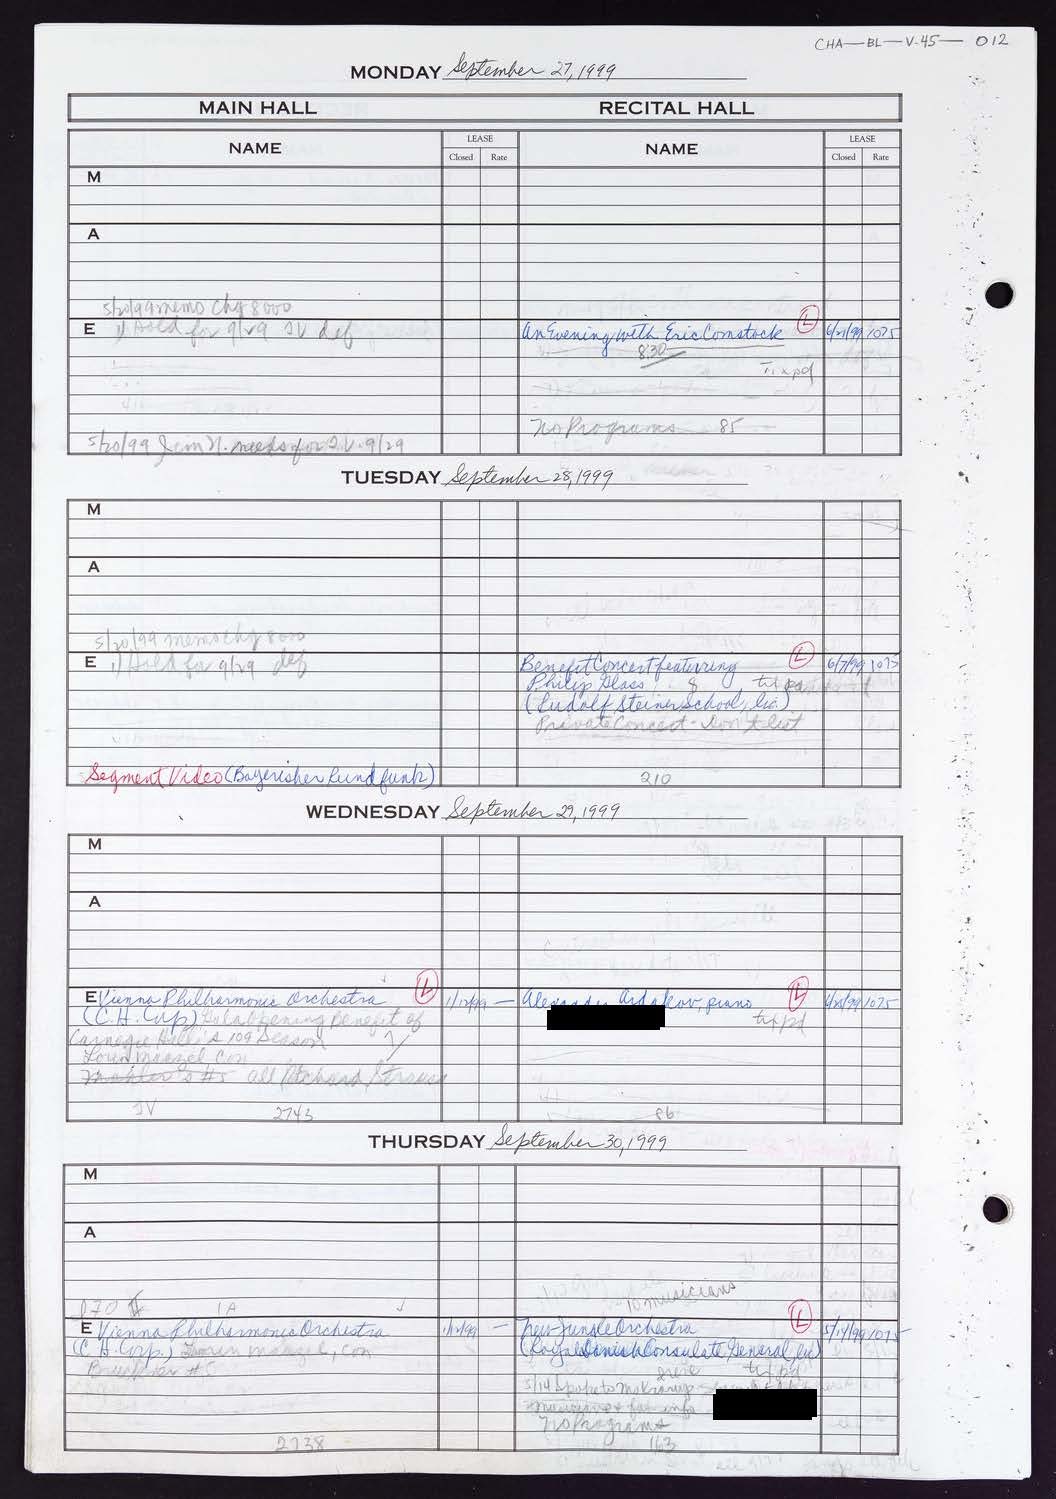 CHA—BL—V-45— 012
MONDAY September 27, 1999
MAIN HALL RECITAL HALL
NAME LEASE Closed Rate NAME LEASE Closed Rate
M
A
5/20/99 memo chg 8000
E 1) Hold for 9/29 TV def
An Evening with Eric Comstock L 6/21/99 1075
8:30
Tix pd
No Programs 85
5/20/99 needs for T.V. 9/29
TUESDAY September 28, 1999
M
A
5/20/99 memo chg 8000
E 1) Hold for 9/29 def
Benefit Concert featuring L 6/7/99 1075
Philip Glass 8 tix pd
(Rudolf Steiner School, Inc.)
Private Concert - Don't list
Segment Video (Bayerisher Rundfunk) 210
WEDNESDAY September 29, 1999
M
A
E Vienna Philharmonic Orchestra L 1/12/99 — Alexander Ardakov, piano L 1075
(C.H. Corp) Gala Opening Benefit of tix pd
Carnegie Hall's 109 Season 7
Lorin Maazel Con
Mahler's #5 all Richard Strauss
TV 2743 86
THURSDAY September 30, 1999
M
A
10 musicians
870 1A
E Vienna Philharmonic Orchestra 1/12/99 — New Jungle Orchestra L 5/14/99 1075
(C.H. Corp.) Lorin Maazel, Con (Royal Danish Consulate General, Inc)
Bruckner #5 tix pd
5/14 Spoke to
musicians for info
No Programs
2738 163